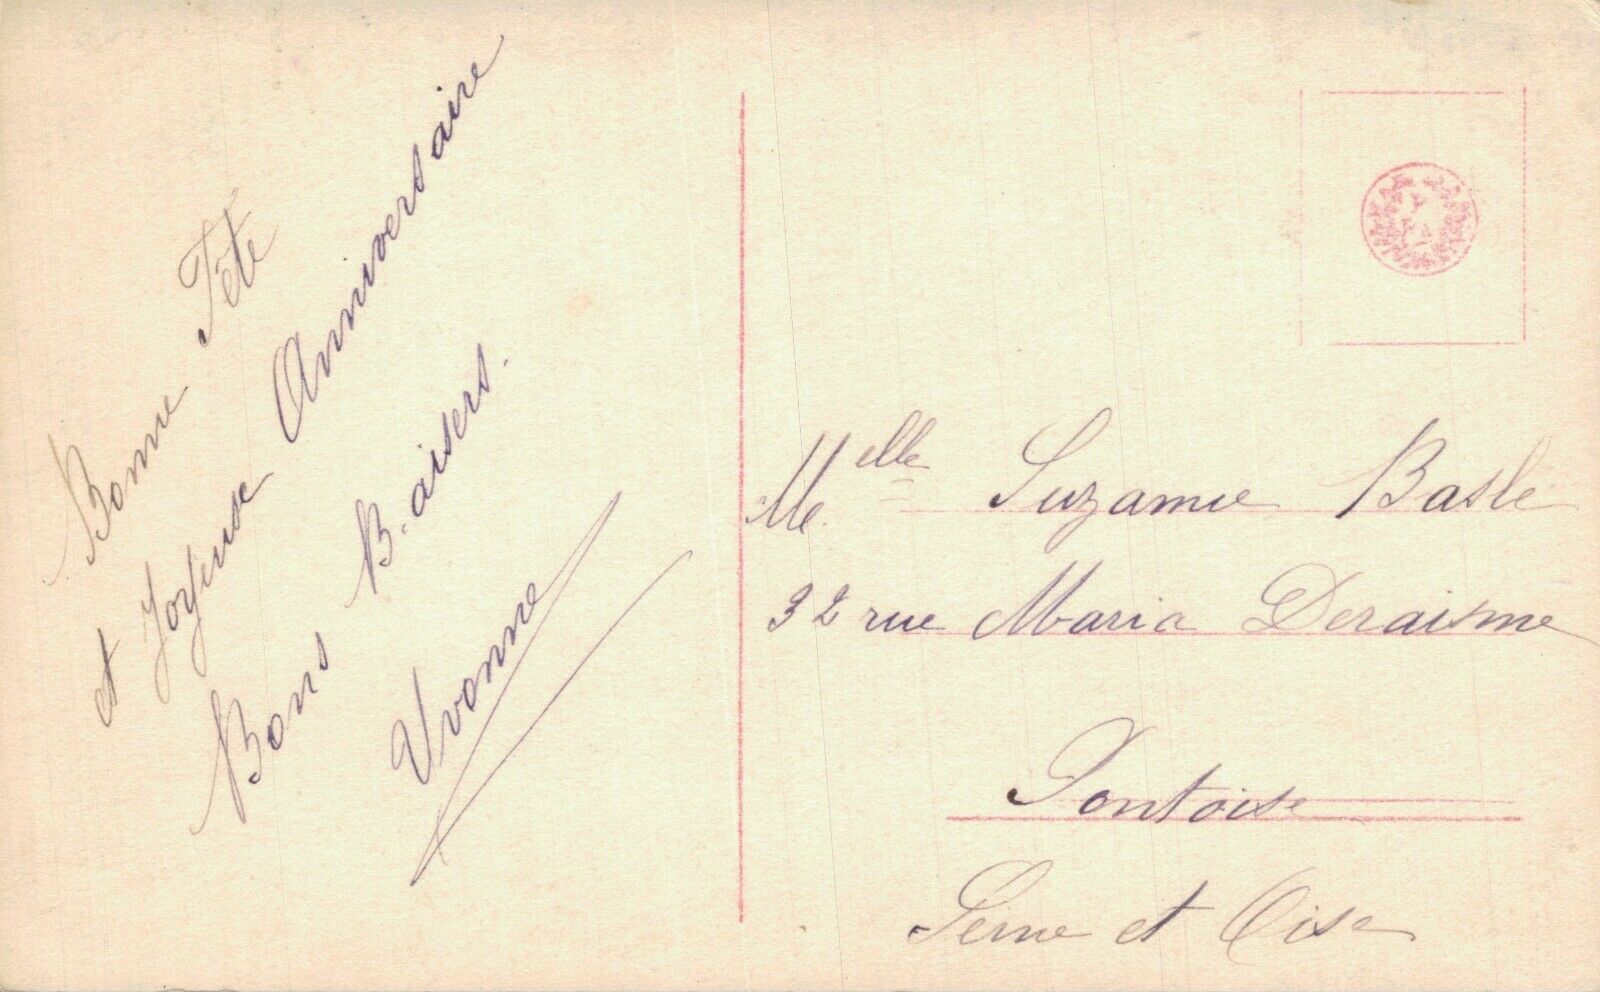 Bonne Fête
et Joyeuse Anniversaire
Bons Baisers.
Yvonne
Melle Suzanne Basle
32 rue Maria Deraisme
Pontoise
Seine et Oise